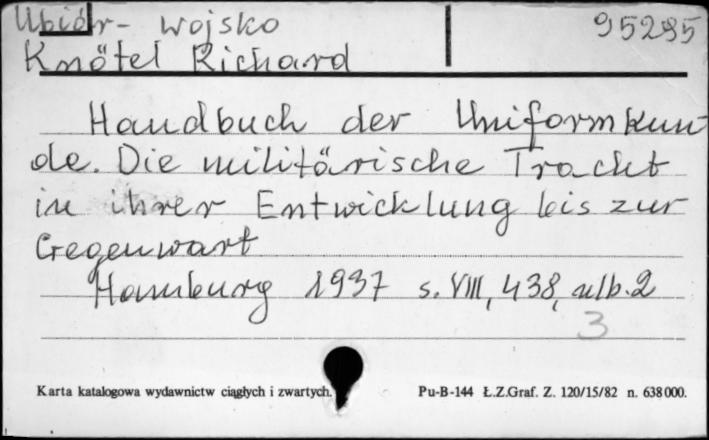 Ubiór - wojsko 95295
Knötel Richard
Handbuch der Uniformkun
de. Die militärische Tracht
in ihrer Entwicklung bis zur
Gegenwart
Hamburg 1937 s. VIII, 438, alb. 2
3
Karta katalogowa wydawnictw ciągłych i zwartych. Pu-B-144 Ł.Z.Graf. Z. 120/15/82 n. 638 000.